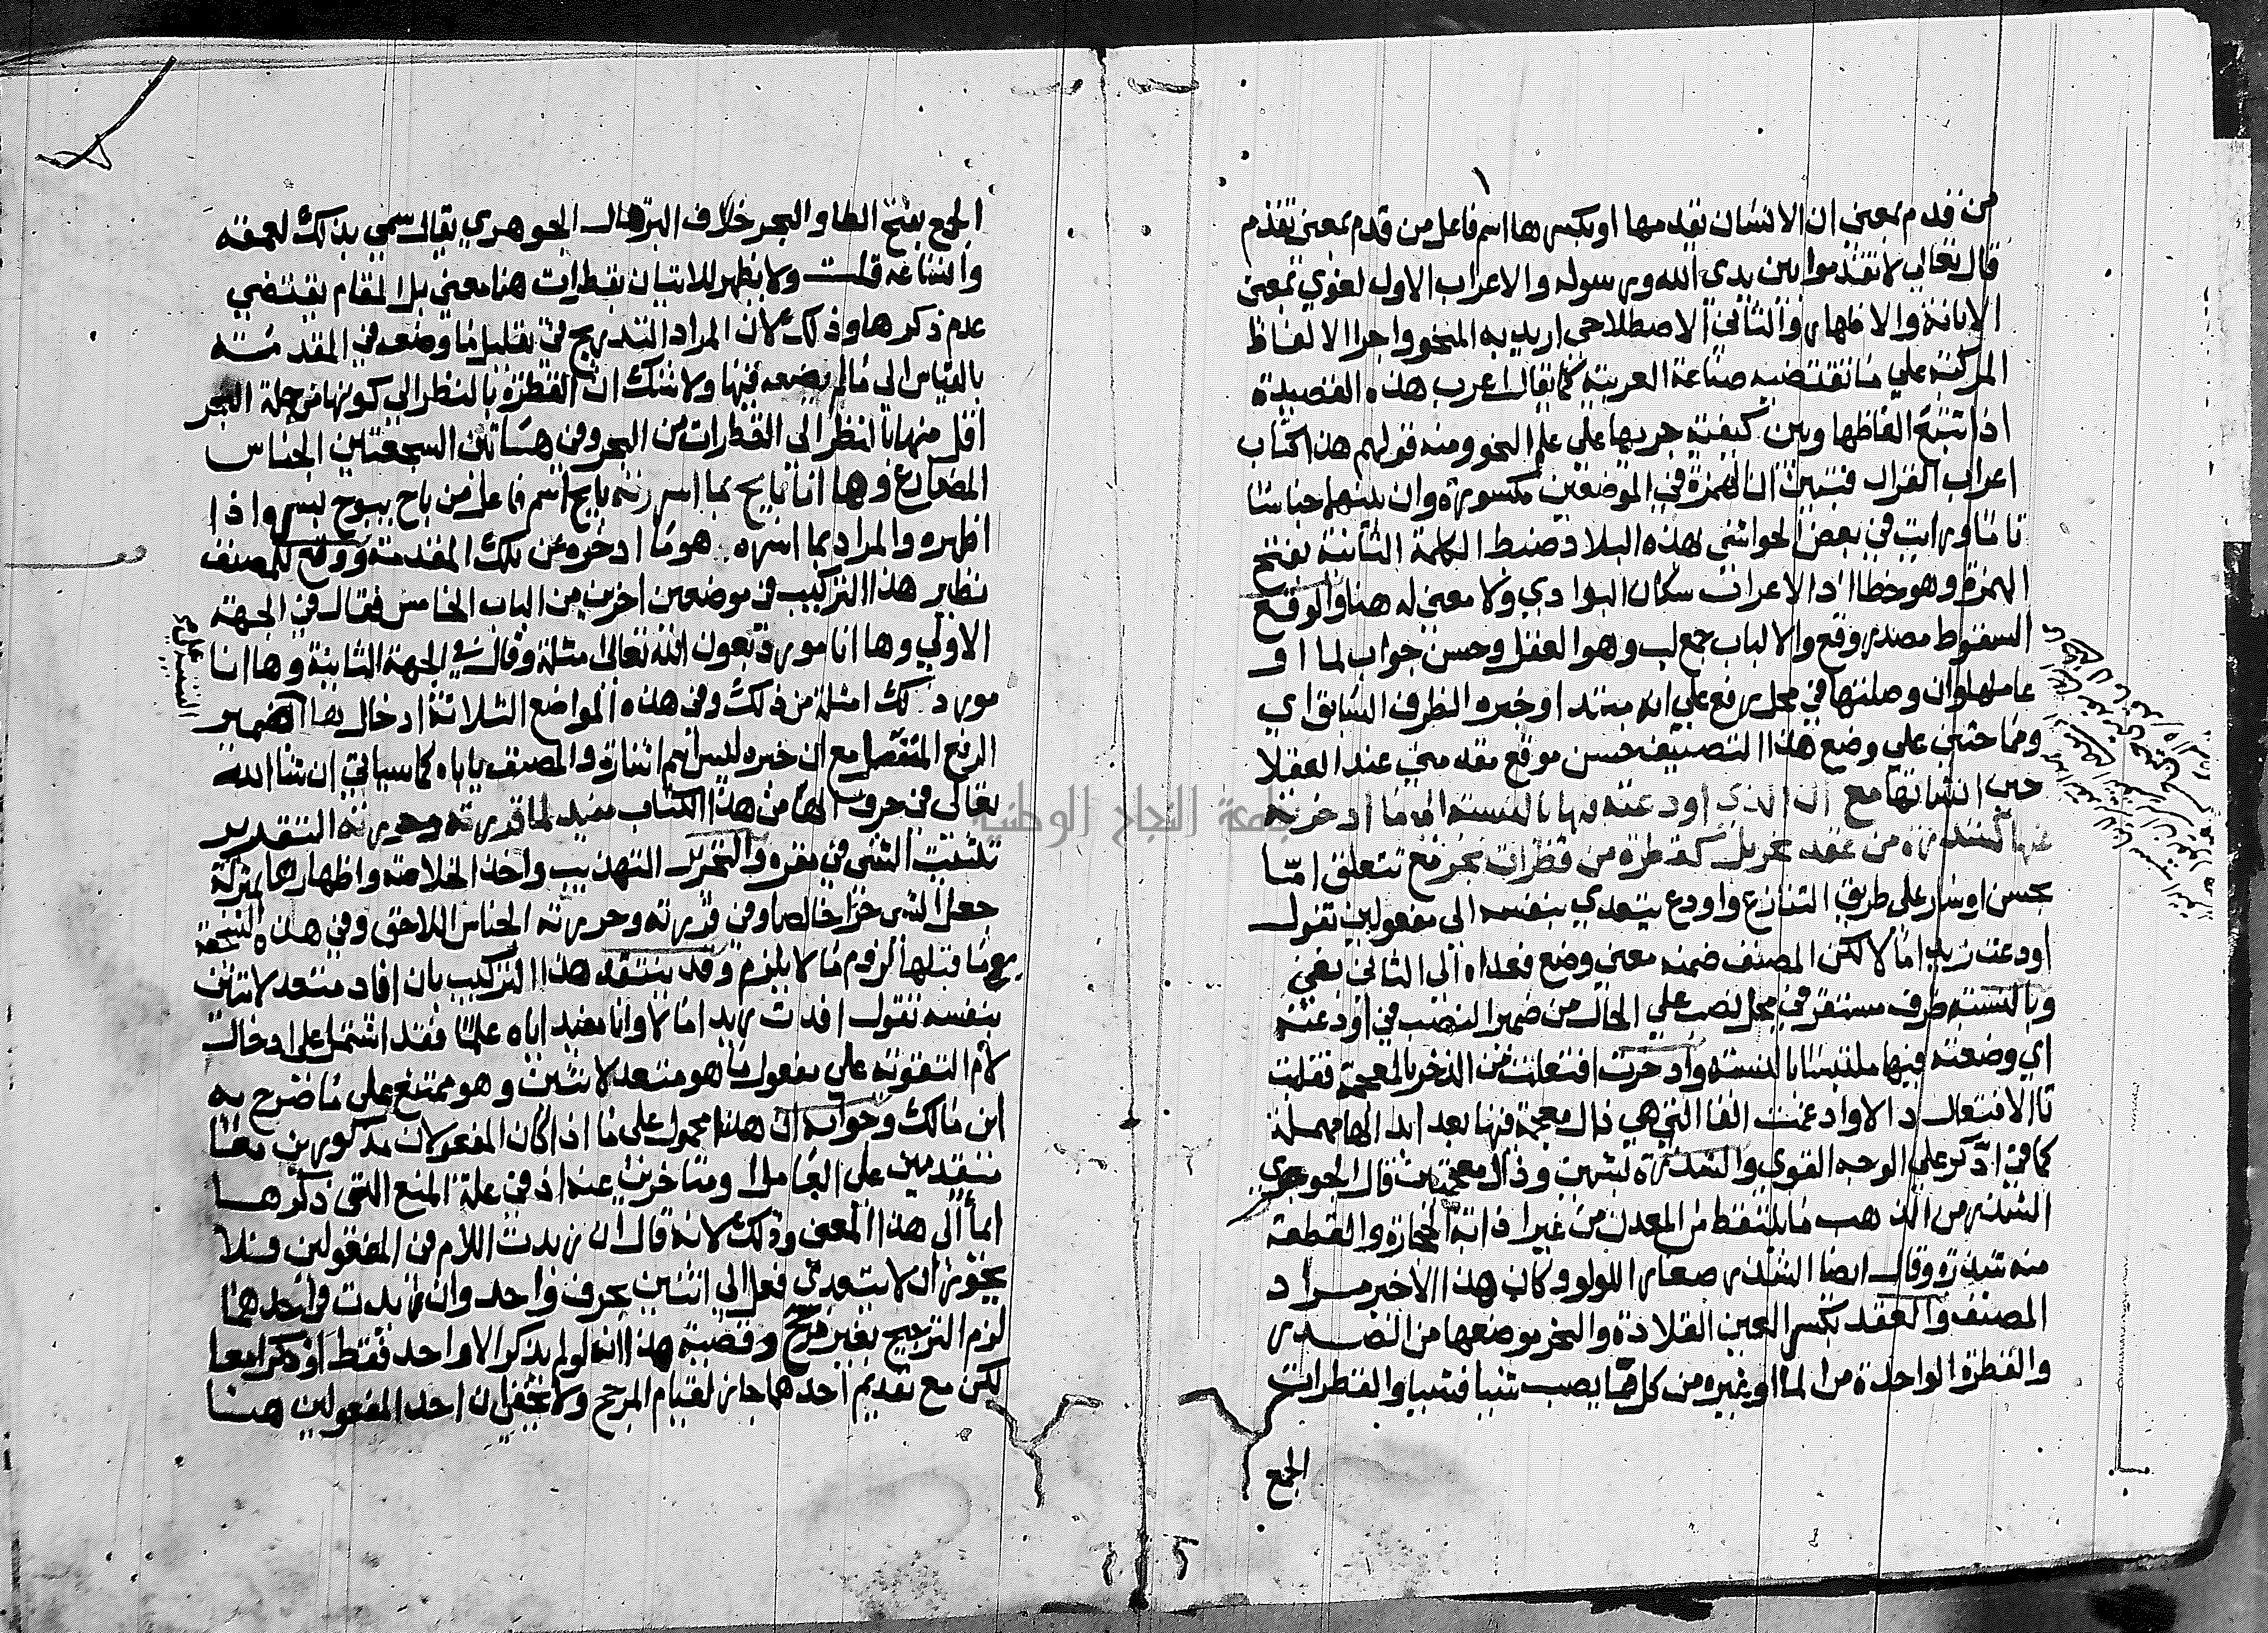 من قدم بمعنى ان الانسان يقدمها او بكسرها اسم فاعل من قدم بمعنى تقدم
قال تعالى لا تقدموا بين يدى الله ورسوله والاعراب الاول لغوي بمعنى
الابانة والاظهار والثاني الاصطلاحى اريد به النحو واجرا الالفاظ
المركبة علي ما تقتضيه صناعة العربية كما يقال اعرب هذه القصيدة
اذا تتبع الفاظها وبين كيفية جريها على علم النحو ومنه قولهم هذا كتاب
اعراب القران فتبين ان الهمزة في الموضعين مكسورة وان بينهما جناسا
تاما ورايت في بعض الحواشي بهذه البلاد ضبط الكلمة الثانية بفتح
الهمزة وهو خطا اذ الاعراب سكان البوادي ولا معنى له هنا والوقع
السقوط مصدر وقع والالباب جمع لب وهو العقل وحسن جواب لما او
عاملها وان وصلتها في محل رفع على انه مبتدا وخبره الظرف السابق اي
ومما حثني على وضع هذا التصنيف حسن موقع مقدمتي عند العقلا
حين انشاتها مع ان الذي اودعته فيها بالنسبة الى ما ادخرته
عنها كشذرة من عقد نحر بل كقطرة من قطرات بحر مع تتعلق اما
بحسن او سار على طريق التنازع واودع يتعدي بنفسه الى مفعولين تقول
اودعت زيدا مالا لكن المصنف ضمنه معنى وضع فعداه الى الثاني بفي
وبالنسبة ظرف مستقر في محل نصب علي الحال من ضمير النصب في اودعته
اي وضعته فيها ملتبسا بالنسبة وادخرت افتعلت من الذخر بالمعجمة فقلبت
تا الافتعال دالا وادغمت الفا التي هي ذال معجمة فيها بعد ابدالها مهملة
كما في ادكر علي الوجه القوي والشذرة بشين وذال معجمتين قال الجوهري
الشذر من الذهب ما يلتقط من المعدن من غير اذابة الحجارة والقطعة
منه شذرة وقال ايضا الشذر صغار اللولو وكان هذا الاخير مراد
المصنف والعقد بكسر العين القلادة والنحر موضعها من الصدر
والقطرة الواحدة من الماا وغيره من كل ما يصب شيا فشيا والقطرات
الجمع
الجمع بفتح الطا والبحر خلاف البر قال الجوهري يقال سمي بذلك لعمقه
واتساعه قلت ولا يظهر للاتيان بقطرات هنا معنى بل المقام يقتضي
عدم ذكرها وذلك لان المراد التدريج في تقليل ما وضعه في المقدمة
بالقياس الى ما لم يضعه فيها ولا شك ان القطرة بالنظر الى كونها من جملة البحر
اقل منها بالنظر الى القطرات من البحر وفي هاتين السجعتين الجناس
المضارع وها انا بايح بما اسررته بايح اسم فاعل من باح يبوح بسر واذا
اظهره والمراد بما اسره هو ما ادخره عن تلك المقدمة ووقع للمصنف
نظير هذا التركيب في موضعين اخرين من الباب الخامس فقال في الجهة
الاولي وها انا مورد بعون الله تعالى امثلة وقال في الجهة الثانية وها انا
مورد لك امثلة من ذلك وفي هذه المواضع الثلاثة ادخال ها الضمير
الرفع المنفصل مع ان خبره ليس اسم اشارة والمصنف ياباه كما سياتي ان شا الله
تعالى في حرف الها من هذا الكتاب مفيد لما قررته وحررته التقدير
تثبيت الشي في مقره والتحرير التهذيب واخذ الخلاصة واظهارها بمنزلة
جعل الشي حرا خالصا وفي قررته وحررته الجناس اللاحق وفي هذه السجعة
مع ما قبلها لزوم ما لا يلزم وقد ينتقد هذا التركيب بان افاد متعد لاثنين
بنفسه تقول افدت زيدا مالا وانا مفيد اياه علما فقد اشتمل على ادخال
لام التقوية علي مفعول ما هو متعد لاثنين وهو ممتنع على ما صرح به
ابن مالك وجوابه ان هذا محمول على ما اذا كان المفعولان مذكورين معا
متقدمين على العامل او متاخرين عنه اذ في علة المنع التي ذكرها
ايما الى هذا المعنى وذلك لانه قال ان زيدت اللام في المفعولين فلا
يجوز ان لا يتعدى فعل الي اثنين بحرف واحد وان زيدت في احدهما
لزم الترجيح بغير مرجح وقضية هذا انه لو لم يذكر الا واحد فقط او ذكرا معا
لكن مع تقديم احدهما جاز لقيام المرجح ولا يخفى ان احد المفعولين هنا
جامعة النجاح الوطنية